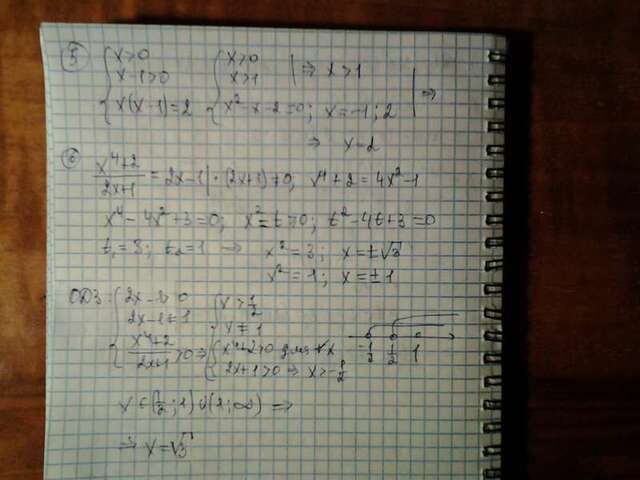 5) { x>0 { x>0 | ⇒ x>1 |
x-1>0 x>1 | ⇒
x(x-1)=2 x²-x-2=0; x=-1; 2
⇒ x=2
6) (x⁴+2)/(2x+1) = 2x-1 | ·(2x+1)≠0; x⁴+2=4x²-1
x⁴-4x²+3=0; x²=t>0; t²-4t+3=0
t₁=3; t₂=1 ⇒ x²=3; x=±√3
x²=1; x=±1
ОДЗ: { 2x-1>0 { x>1/2
2x-1≠1 x≠1
(x⁴+2)/(2x+1)>0 ⇒ { x⁴+2>0 для ∀x -1/2 1/2 1
2x+1>0 ⇒ x>-1/2
x∈(1/2; 1)∪(1; ∞) ⇒
⇒ x=√3